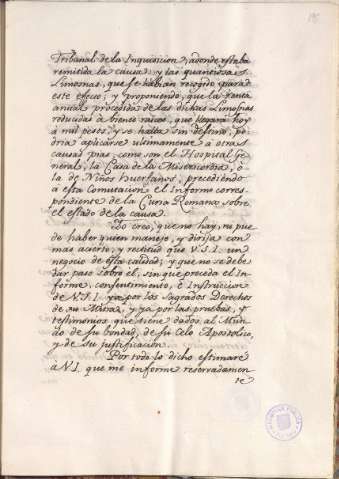 Tribunal de la Inquisicion, adonde estaba
remitida la causa: y las quantiosas
Limosnas, que se habian recogido para
este efecto; y proponiendo, que la renta
anual procedida de las dichas Limosnas
reducidas à bienes raices, que llegarà hoy
à mil pesos, y se halla sin destino, po-
dria aplicarse ultimamente à otras
causas pias, como son el Hospital Ge-
neral, la Casa de la Misericordia, ò
la de Niños huerfanos, precediendo
à esta Comutacion el Informe corres-
pondiente de la Curia Romana sobre
el estado de la causa.
Yo creo, que no hay, ni pue-
de haber quien maneje, y dirija con
mas acierto, y rectitud que V.S.I. un
negocio de esta calidad; y que no se debe
dar paso sobre èl, sin que preceda el In-
forme, consentimiento, è Instruccion
de V.S.I. ya por los Sagrados Derechos
de su Mitra, y ya por las pruebas, y
testimonios que tiene dados al Mun-
do de su bondad, de su Celo Apostolico,
y de su justificacion.
Por todo lo dicho estimarè
à V.I. que me informe reservadamen-
te